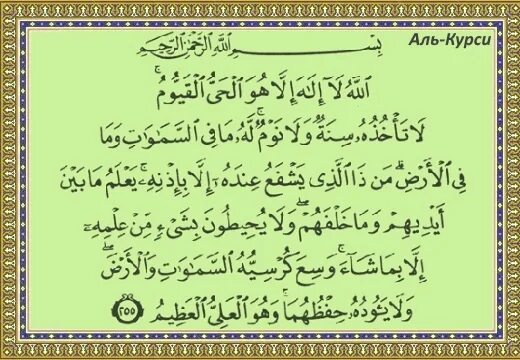 Аль-Курси
بِسْمِ اللَّهِ الرَّحْمَٰنِ الرَّحِيمِ
اللَّهُ لَا إِلَٰهَ إِلَّا هُوَ الْحَيُّ الْقَيُّومُ ۚ
لَا تَأْخُذُهُ سِنَةٌ وَلَا نَوْمٌ ۚ لَّهُ مَا فِي السَّمَاوَاتِ وَمَا
فِي الْأَرْضِ ۗ مَن ذَا الَّذِي يَشْفَعُ عِندَهُ إِلَّا بِإِذْنِهِ ۚ يَعْلَمُ مَا بَيْنَ
أَيْدِيهِمْ وَمَا خَلْفَهُمْ ۖ وَلَا يُحِيطُونَ بِشَيْءٍ مِّنْ عِلْمِهِ
إِلَّا بِمَا شَاءَ ۚ وَسِعَ كُرْسِيُّهُ السَّمَاوَاتِ وَالْأَرْضَ ۖ
وَلَا يَئُودُهُ حِفْظُهُمَا ۚ وَهُوَ الْعَلِيُّ الْعَظِيمُ ٢٥٥